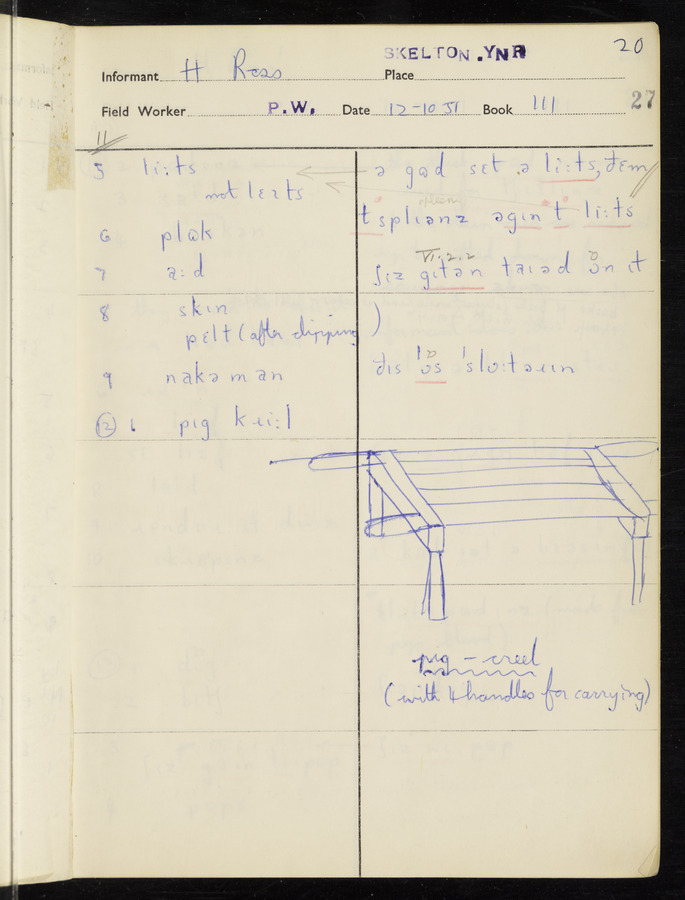 SKELTON.YNR 20
Informant H Ross Place
Field Worker P.W. Date 12-10 51 Book III 27
11
5 li:ts ə gɷd sɛt ə li:ts, ðɛm
not lɛɪts
tspliənz əgɪn t li:ts
6 plɷk
VI.2.2
7 a:d ʃɪz gɪtən taɪəd ön ɪt
8 skɪn
pɛlt (after dipping)
9 nakəmən ðɪs
12 1 pɪg kɹi:l
pig-creel
(with 4 handles for carrying)